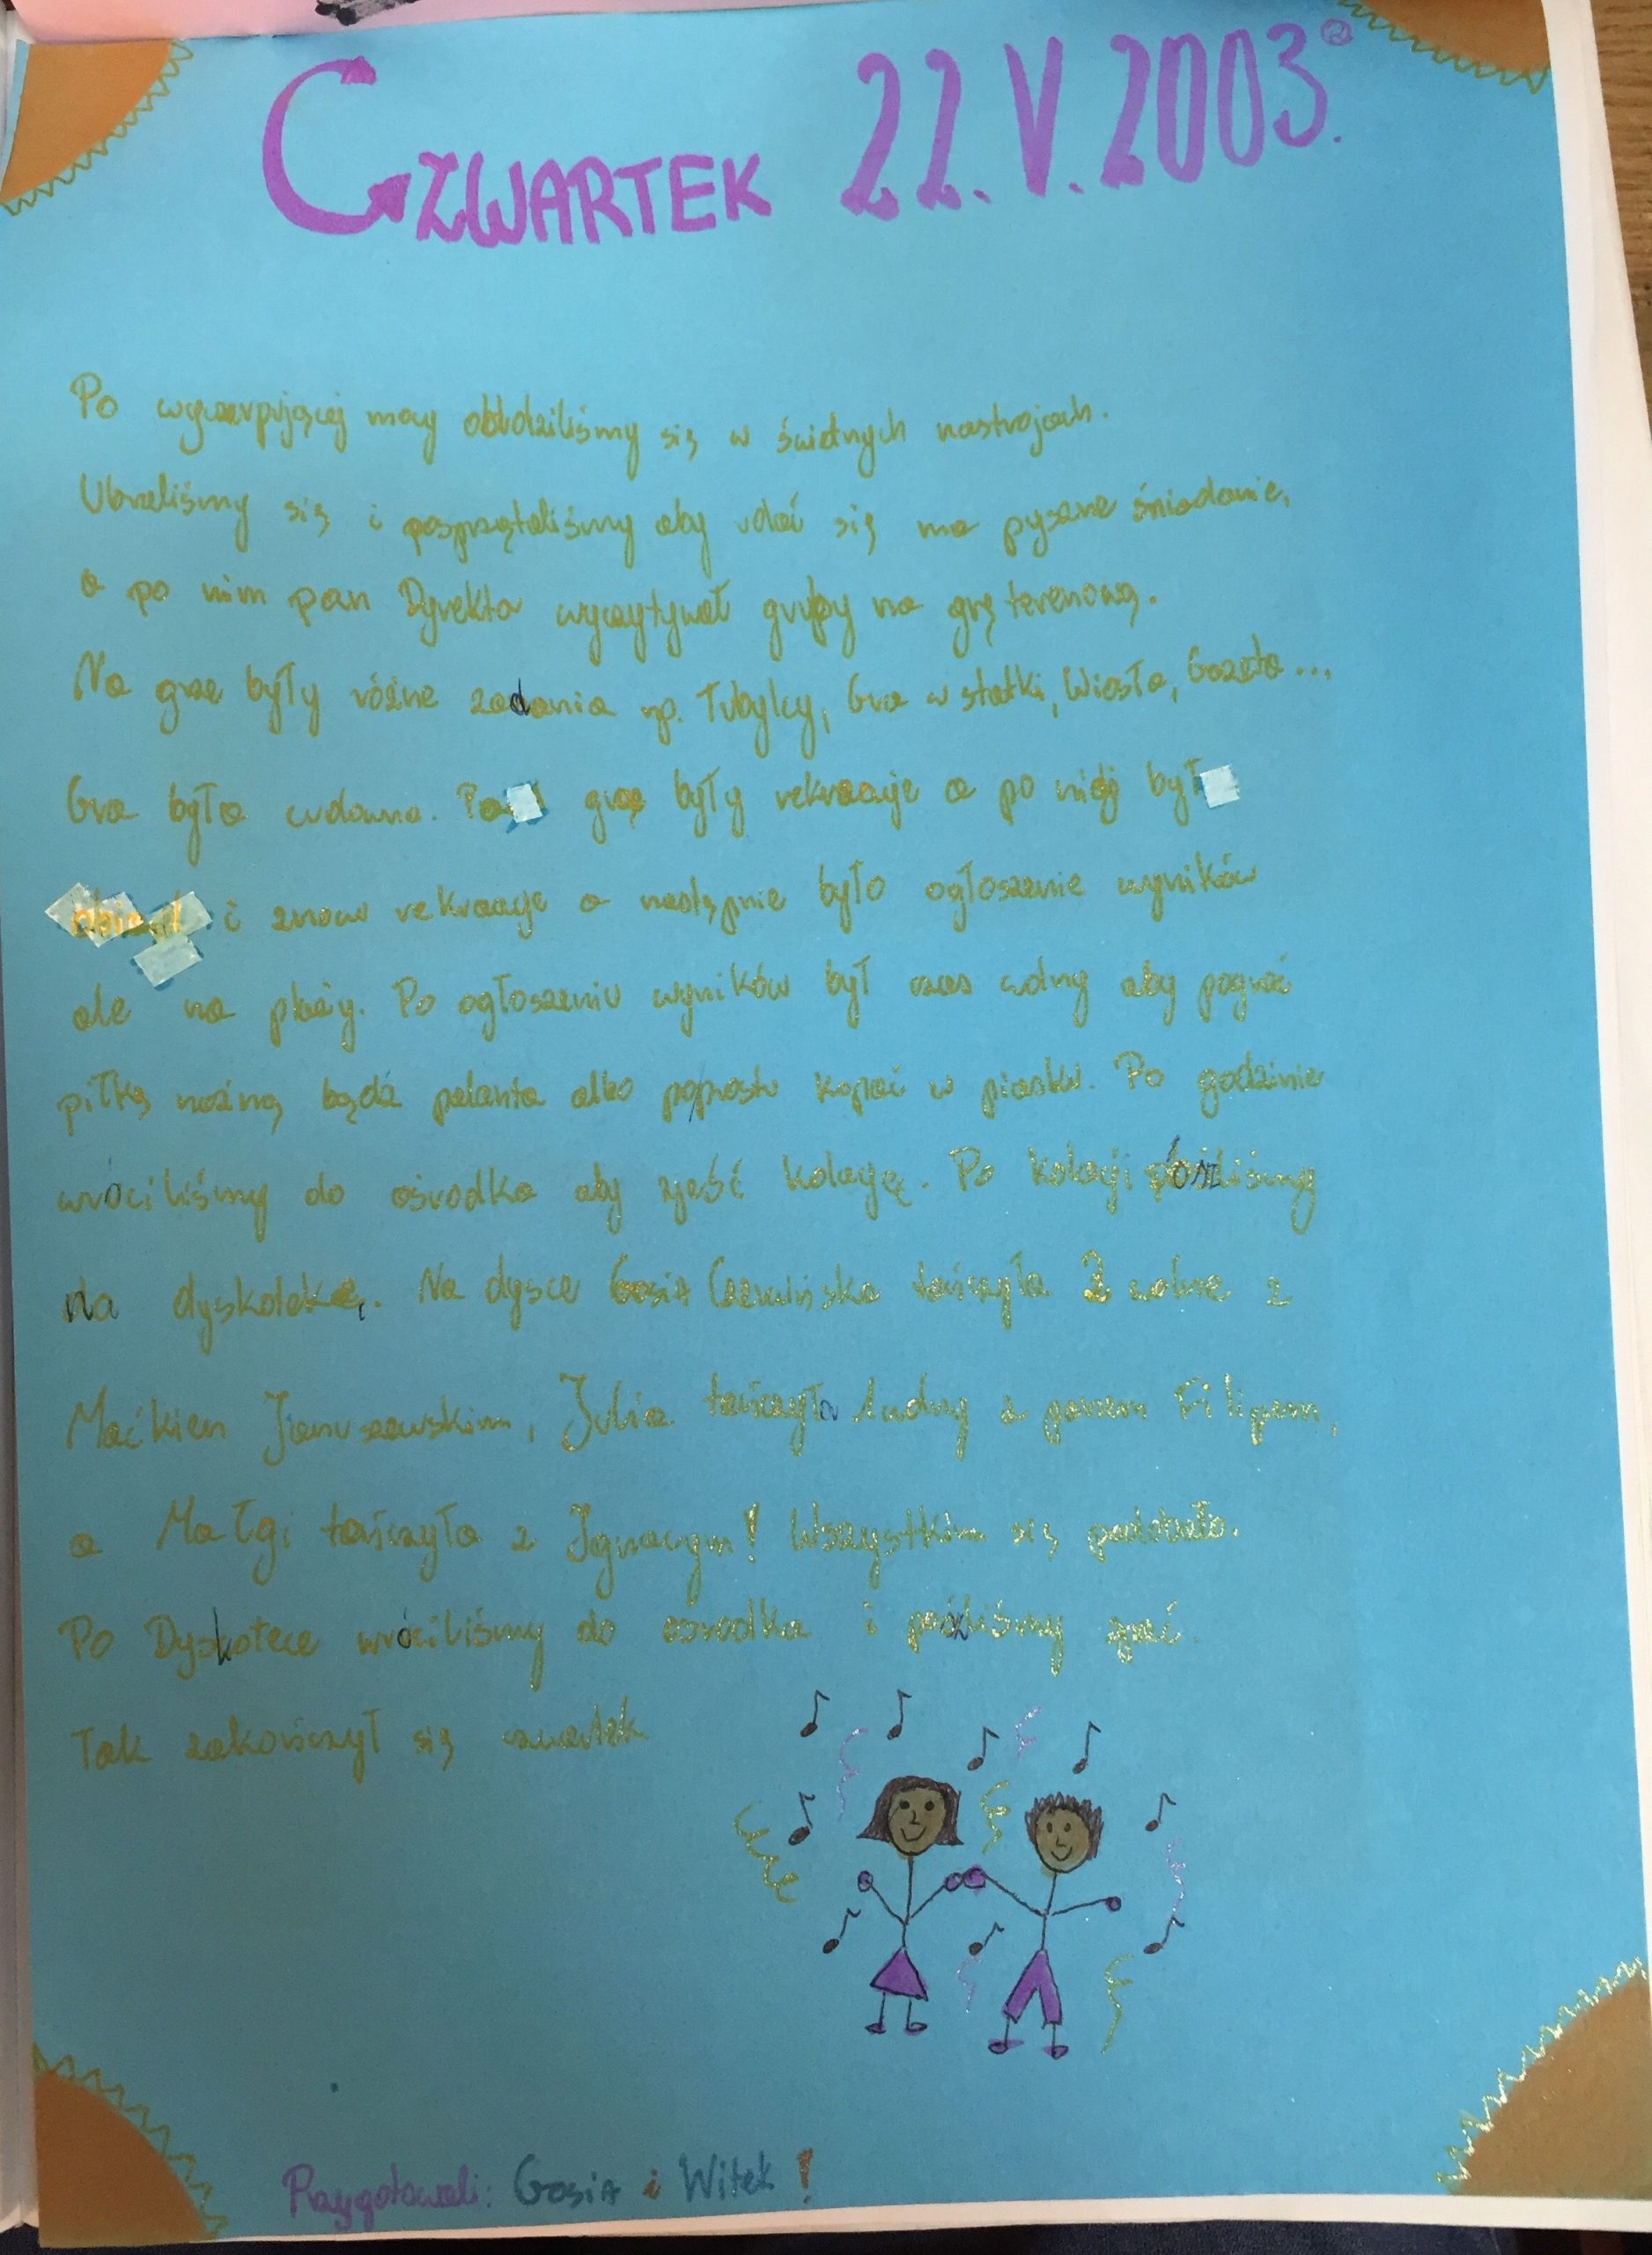 CZWARTEK 22.V.2003.
Po wyczerpującej nocy obudziliśmy się w świetnych nastrojach.
Ubraliśmy się i posprzątaliśmy aby udać się na pyszne śniadanie,
a po nim pan Dyrekto wyczytywał grupy na grę terenową.
Na grze były różne zadania np. Tubylcy, Gra w statki, Wiosła, Gazeta...
Gra była cudowna. Po grze były rekreacje a po niej był
obiad i znow rekreacje a następnie było ogłoszenie wyników
ale na plaży. Po ogłoszeniu wyników był czas wolny aby pograć
piłkę nożną bądź palanta albo poprostu kopać w piasku. Po godzinie
wróciliśmy do ośrodka aby zjeść kolację. Po kolacji poszliśmy
na dyskotekę. Na dysce Gosia Czemińska tańczyła 3 wolne z
Maćkien Januszewskim, Julia tańczyła 1 wolny z panem Filipem,
a Małgi tańczyła z Ignacym! Wszystkim się podobało.
Po Dyskotece wróciliśmy do ośrodka i poszliśmy spać.
Tak zakończył się czwartek
Przygotowali: Gosia i Witek!